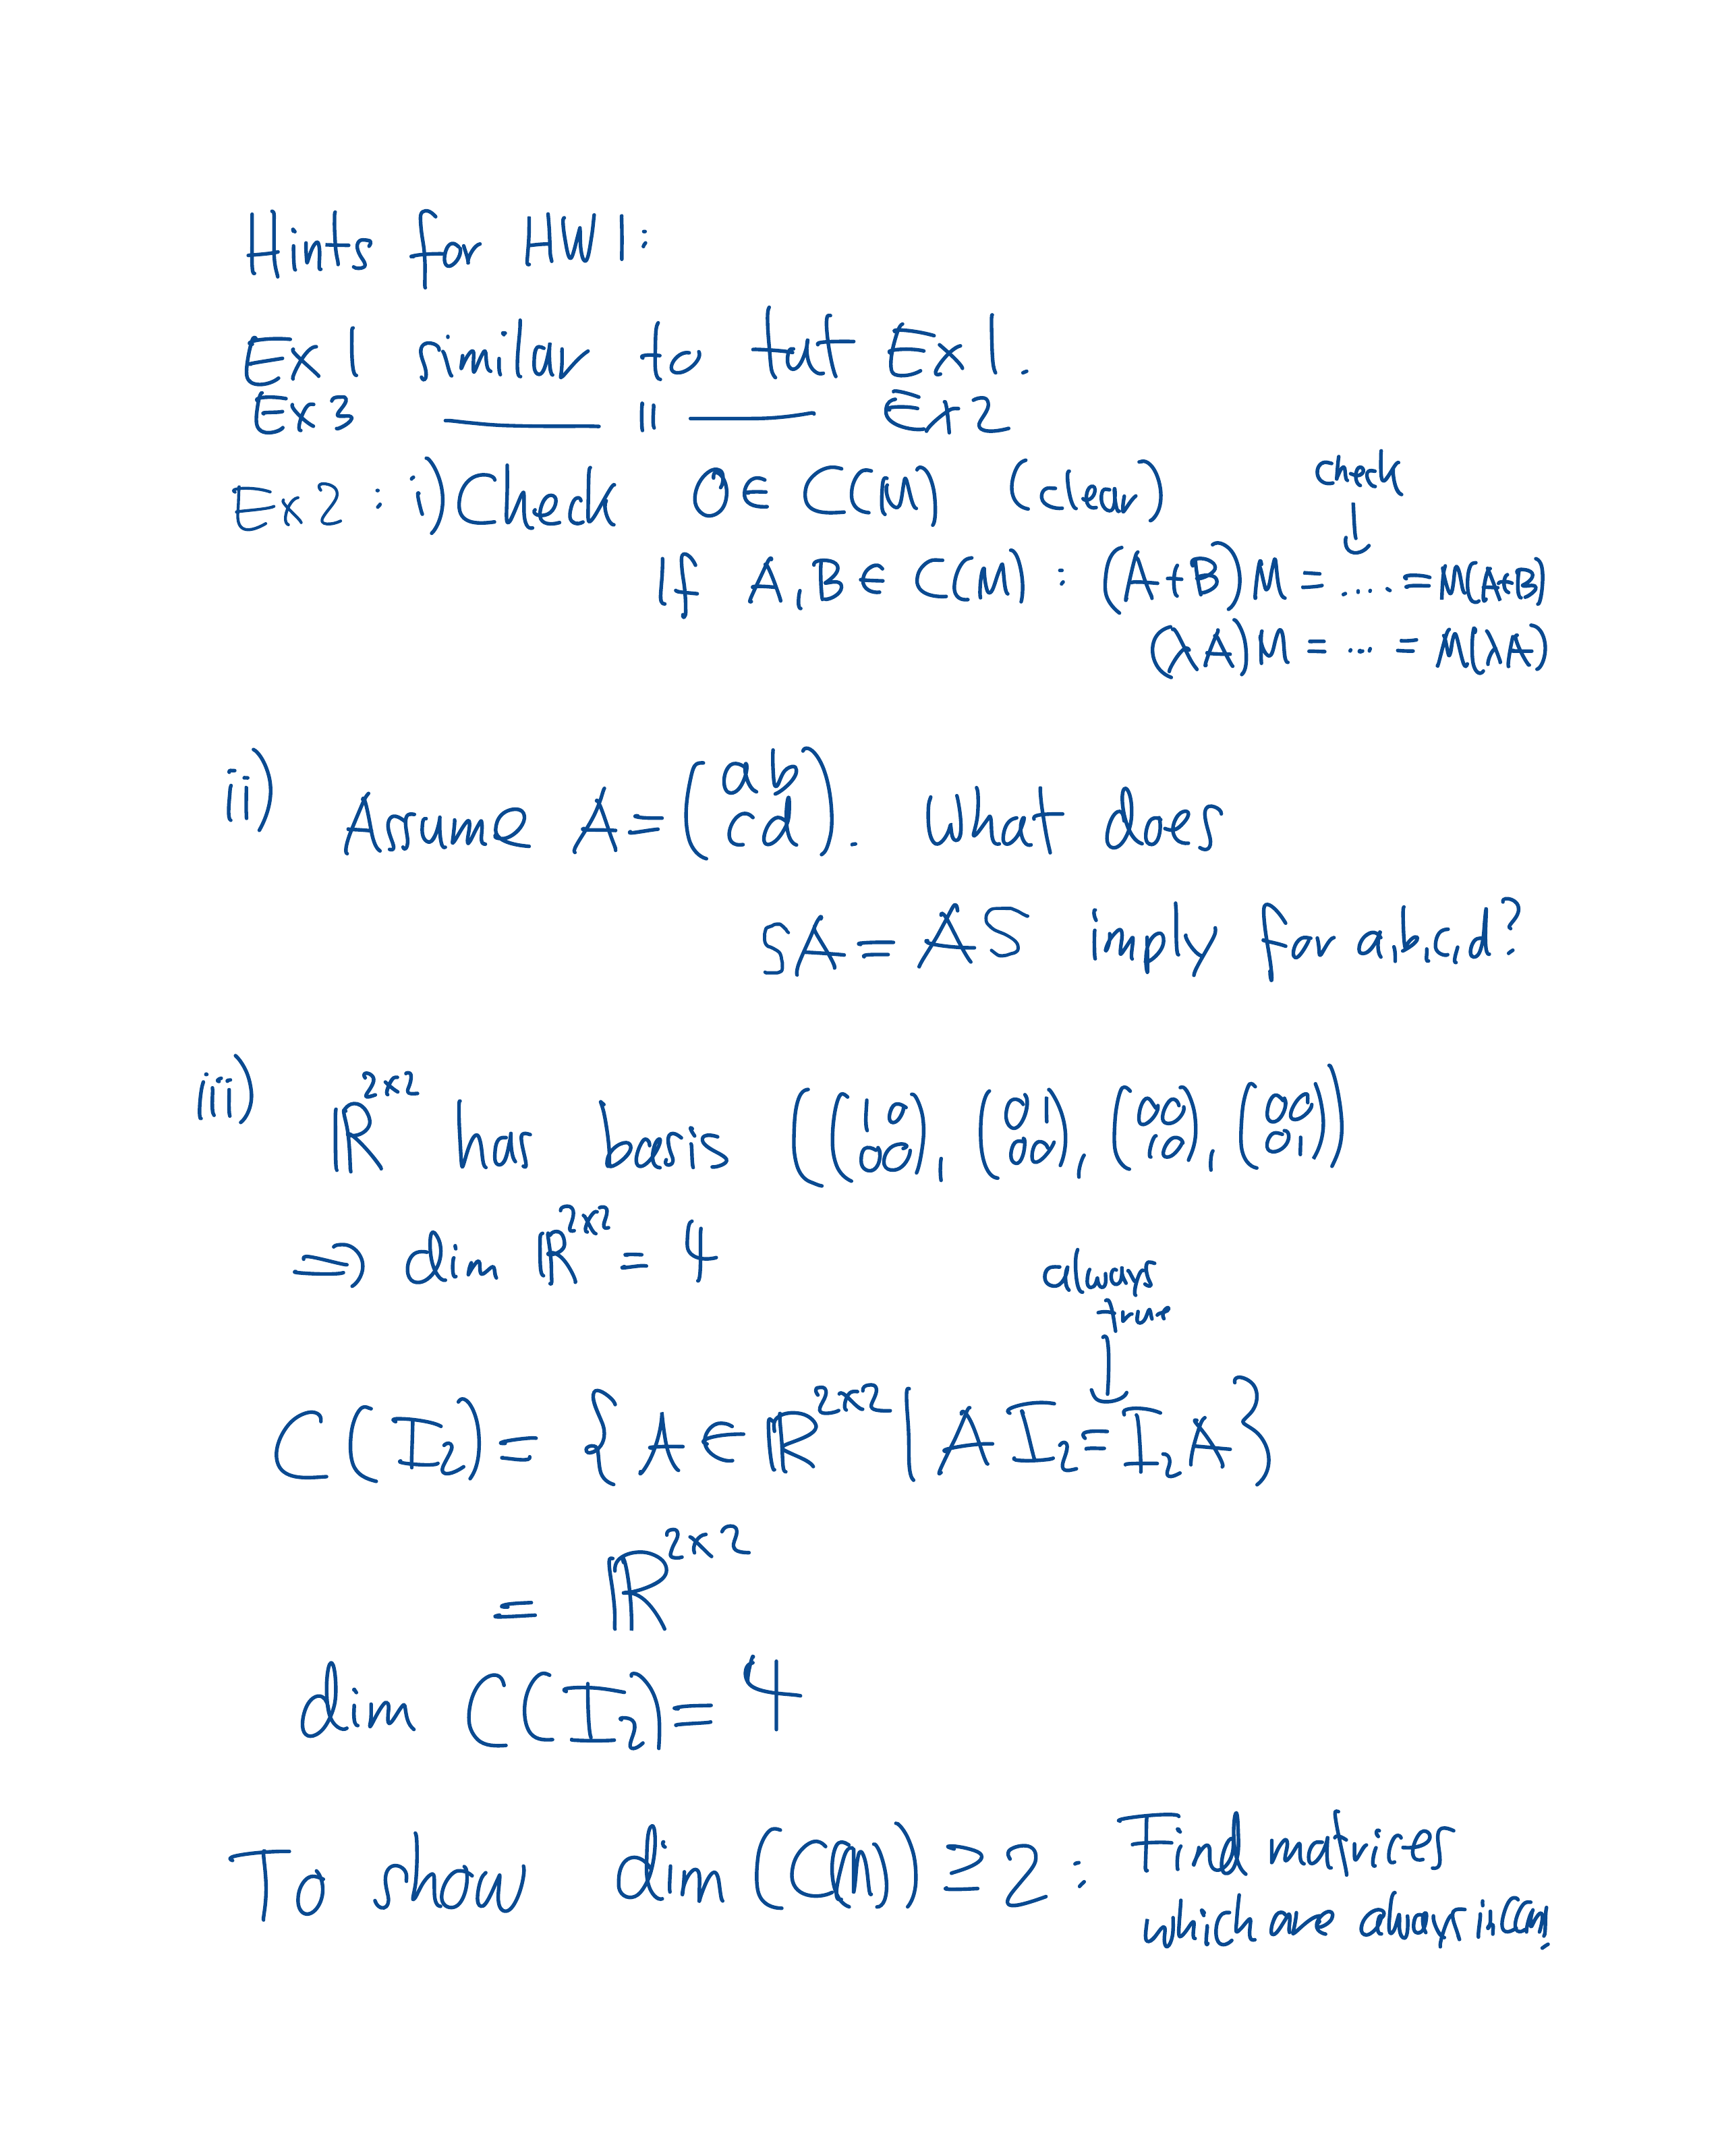 Hints for HW1:
Ex1 similar to tut Ex1.
Ex3 —— 11 —— Ex2
check
Ex2: i) Check 0 ∈ C(M) (clear)
If A,B ∈ C(M): (A+B)M = .... = M(A+B)
(λA)M = ... = M(λA)
ii) Assume A = (ab
cd). What does
SA = AS imply for a,b,c,d?
iii) ℝ^{2×2} has basis ((10
00), (01
00), (00
10), (00
01))
⇒ dim ℝ^{2×2} = 4
always
true
C(I₂) = {A ∈ ℝ^{2×2} | AI₂ = I₂A}
= ℝ^{2×2}
dim C(I₂) = 4
To show dim(C(M)) ≥ 2: Find matrices
which are always in C(M)